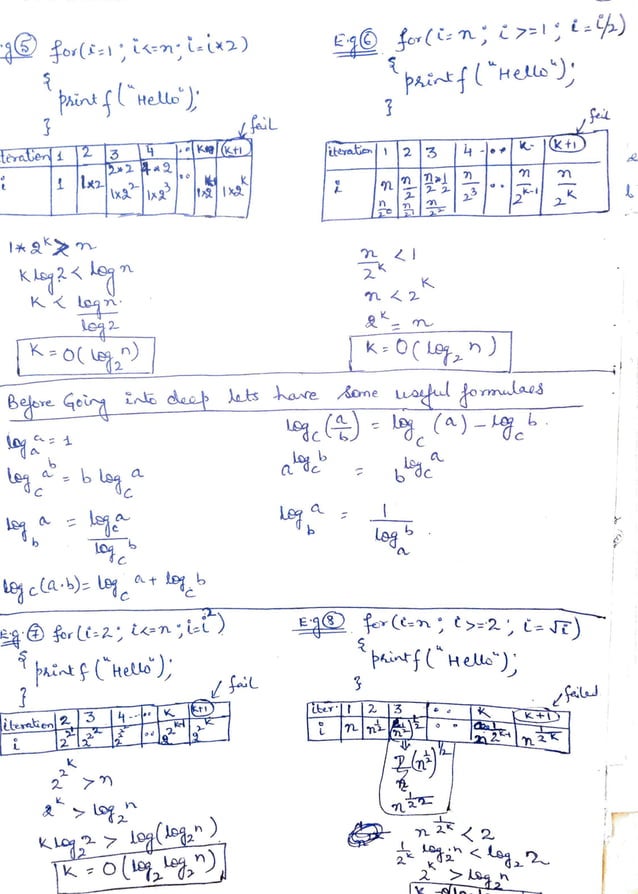 g ⑤ for(i=1; i<=n; i=i*2)
{
printf("Hello");
}
fail
iteration 1 2 3 4 .. k (k+1)
2*2 4*2
i 1 1*2 1*2² 1*2³ .. 1*2^k
1*2^k > n
k log2 < log n
k < log n / log 2
k = O(log₂n)
E.g ⑥ for(i=n; i>=1; i=i/2)
{
printf("Hello");
}
fail
iteration 1 2 3 4 -.. k (k+1)
i n n/2 n/2*1/2 n/2³ .. n/2^(k-1) n/2^k
n/2⁰ n/2¹ n/2²
n/2^k < 1
n < 2^k
2^k = n
k = O(log₂n)
Before Going into deep lets have some useful formulaes
log_a a = 1
log_c a^b = b log_c a
log_b a = log_c a / log_c b
log_c(a.b) = log_c a + log_c b
log_c(a/b) = log_c(a) - log_c b.
a^(log_c b) = b^(log_c a)
log_b a = 1 / log_a b .
E.g. ⑦ for(i=2; i<=n; i=i²)
{
printf("Hello");
}
fail
iteration 2 3 4-.. k (k+1)
i 2^2^1 2^2^2 2^2^3 .. 2^2^(k-1) 2^2^k
2^2^k > n
2^k > log₂n
k log₂2 > log(log₂n)
k = O(log₂ log₂n)
E.g ⑧ for(i=n; i>=2; i=√i)
{
printf("Hello");
}
failed
iter. 1 2 3 .. k k+1
i n n^(1/2) (n^(1/2))^(1/2) .. n^(1/2^k)
(n^(1/2))^(1/2)
n^(1/2^k) < 2
1/2^k log₂n < log₂2
2^k > log₂n